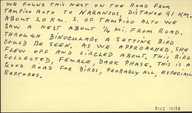 WE FOUND THIS NEST ON THE ROAD FROM
TAMPICO ALTO TO NARANJOS, DISTANCE 41 KM.
ABOUT 20 KM. S. OF TAMPICO ALTO WE
SAW A NEST ABOUT 1/4 MI. FROM ROAD,
THROUGH BINOCULARS A SETTING BIRD
COULD BE SEEN, AS WE APPROACHED, SHE
FLEW OFF AND CIRCLED ABOUT, THIS BIRD
COLLECTED, FEMALE, DARK PHASE, THIS IS A
GOOD ROAD FOR BIRDS, PROBABLY ALL, ESPECIALLY
RAPTORS.